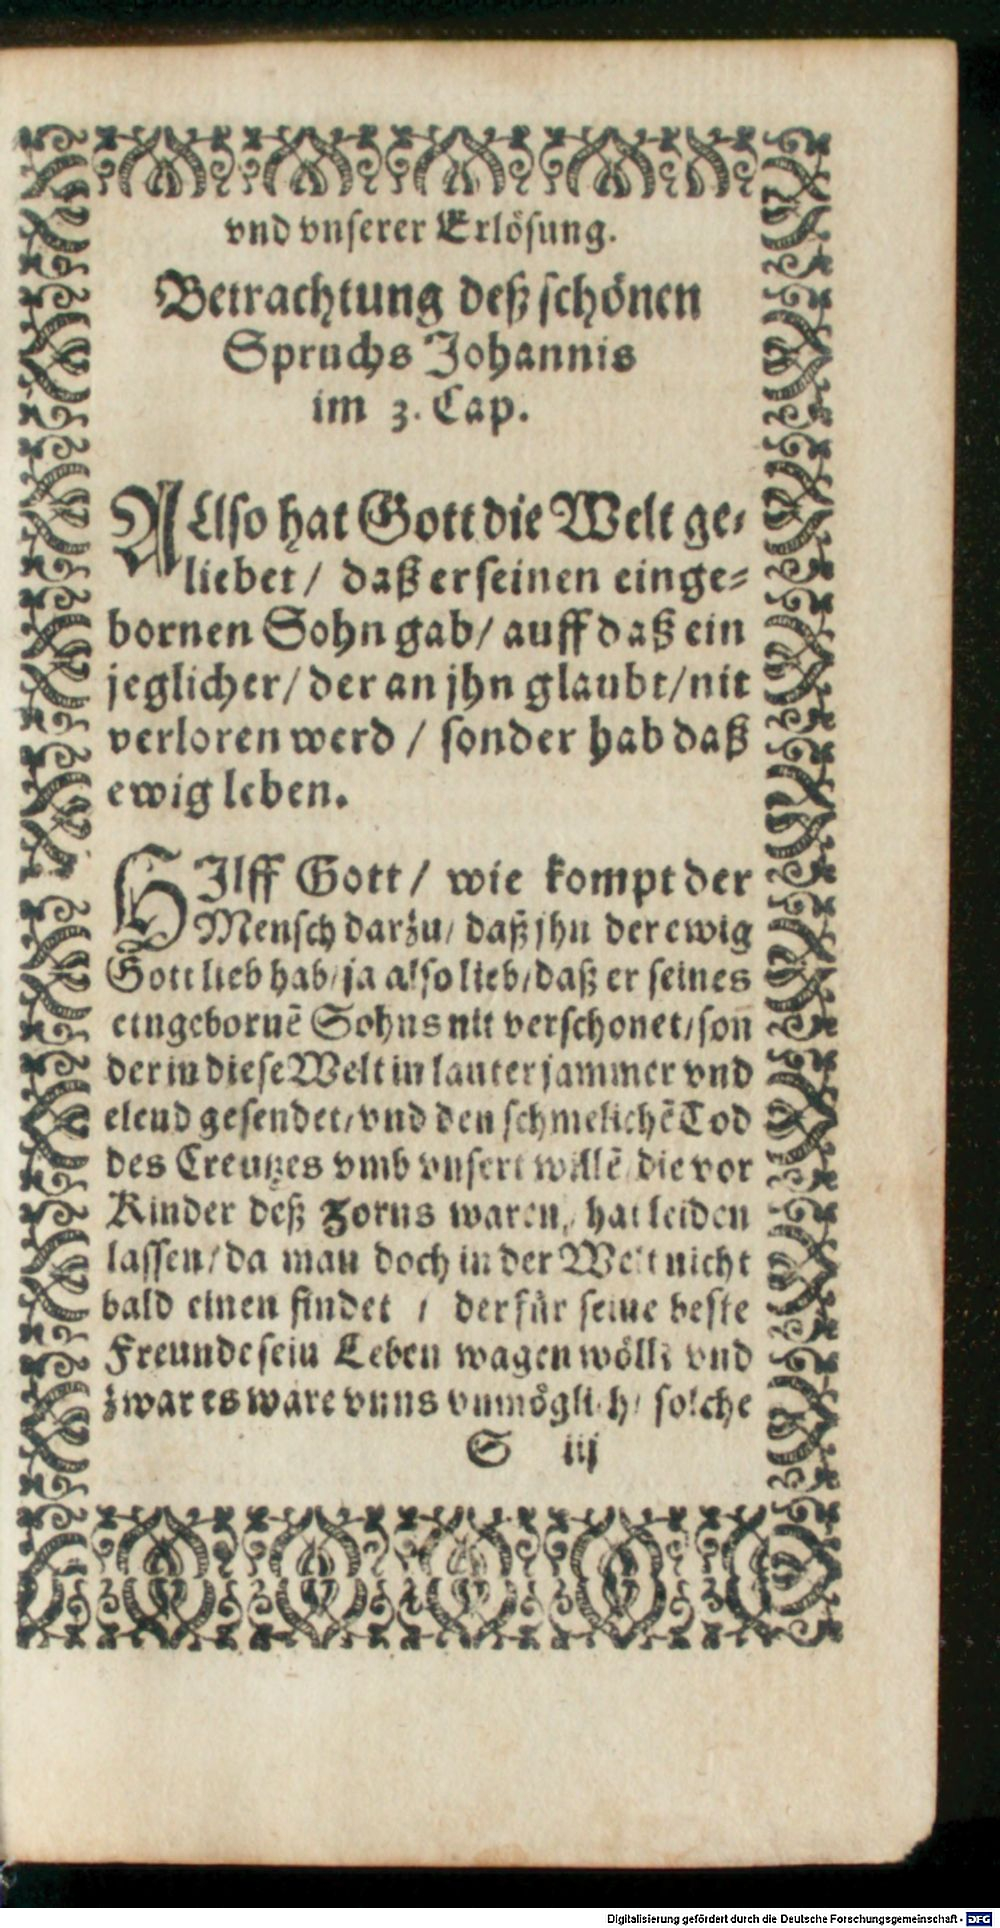 vnd vnserer Erlösung.
Betrachtung deß schönen
Spruchs Johannis
im 3. Cap.
ALlso hat Gott die Welt ge-
liebet / daß er seinen einge-
bornen Sohn gab / auff daß ein
jeglicher / der an jhn glaubt / nit
verloren werd / sonder hab daß
ewig leben.
HIlff Gott / wie kompt der
Mensch darzu / daß jhn der ewig
Gott lieb hab / ja also lieb / daß er seines
eingebornē Sohns nit verschonet / son̄
der in diese Welt in lauter jammer vnd
elend gesendet / vnd den schmelichē Tod
des Creutzes vmb vnsert willē / die vor
Kinder deß Zorns waren / hat leiden
lassen / da man doch in der Welt nicht
bald einen findet / der für seine beste
Freunde sein Leben wagen wöllt vnd
zwar es ware vnns vnmöglich / solche
S iij
Digitalisierung gefördert durch die Deutsche Forschungsgemeinschaft - DFG